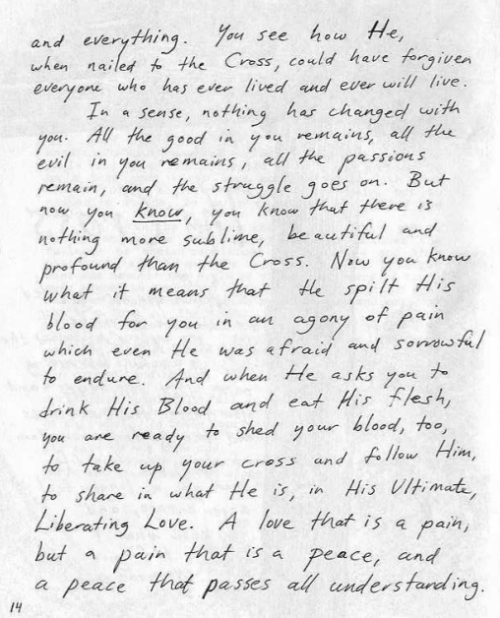 and everything. You see how He,
when nailed to the Cross, could have forgiven
everyone who has ever lived and ever will live.
In a sense, nothing has changed with
you. All the good in you remains, all the
evil in you remains, all the passions
remain, and the struggle goes on. But
now you know, you know that there is
nothing more sublime, beautiful and
profound than the Cross. Now you know
what it means that He spilt His
blood for you in an agony of pain
which even He was afraid and sorrowful
to endure. And when He asks you to
drink His Blood and eat His flesh,
you are ready to shed your blood, too,
to take up your cross and follow Him,
to share in what He is, in His Ultimate,
Liberating Love. A love that is a pain,
but a pain that is a peace, and
a peace that passes all understanding.
14